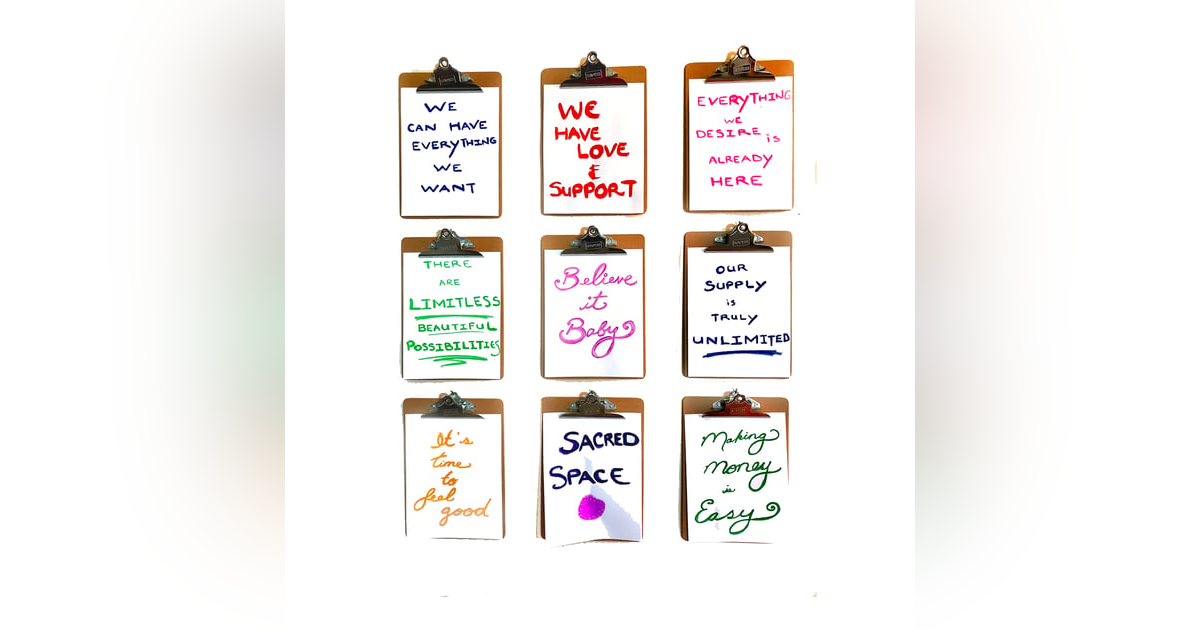 WE
CAN HAVE
EVERYTHING
WE
WANT
WE
HAVE
LOVE
&
SUPPORT
EVERYTHING
WE
DESIRE is
ALREADY
HERE
THERE
ARE
LIMITLESS
BEAUTIFUL
POSSIBILITIES
Believe
it
Baby
OUR
SUPPLY
is
TRULY
UNLIMITED
It's
time
to
feel
good
SACRED
SPACE
Making
Money
is
Easy